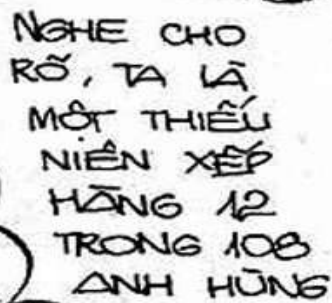 NGHE CHO
RÕ, TA LÀ
MỘT THIẾU
NIÊN XẾP
HÀNG 12
TRONG 108
ANH HÙNG